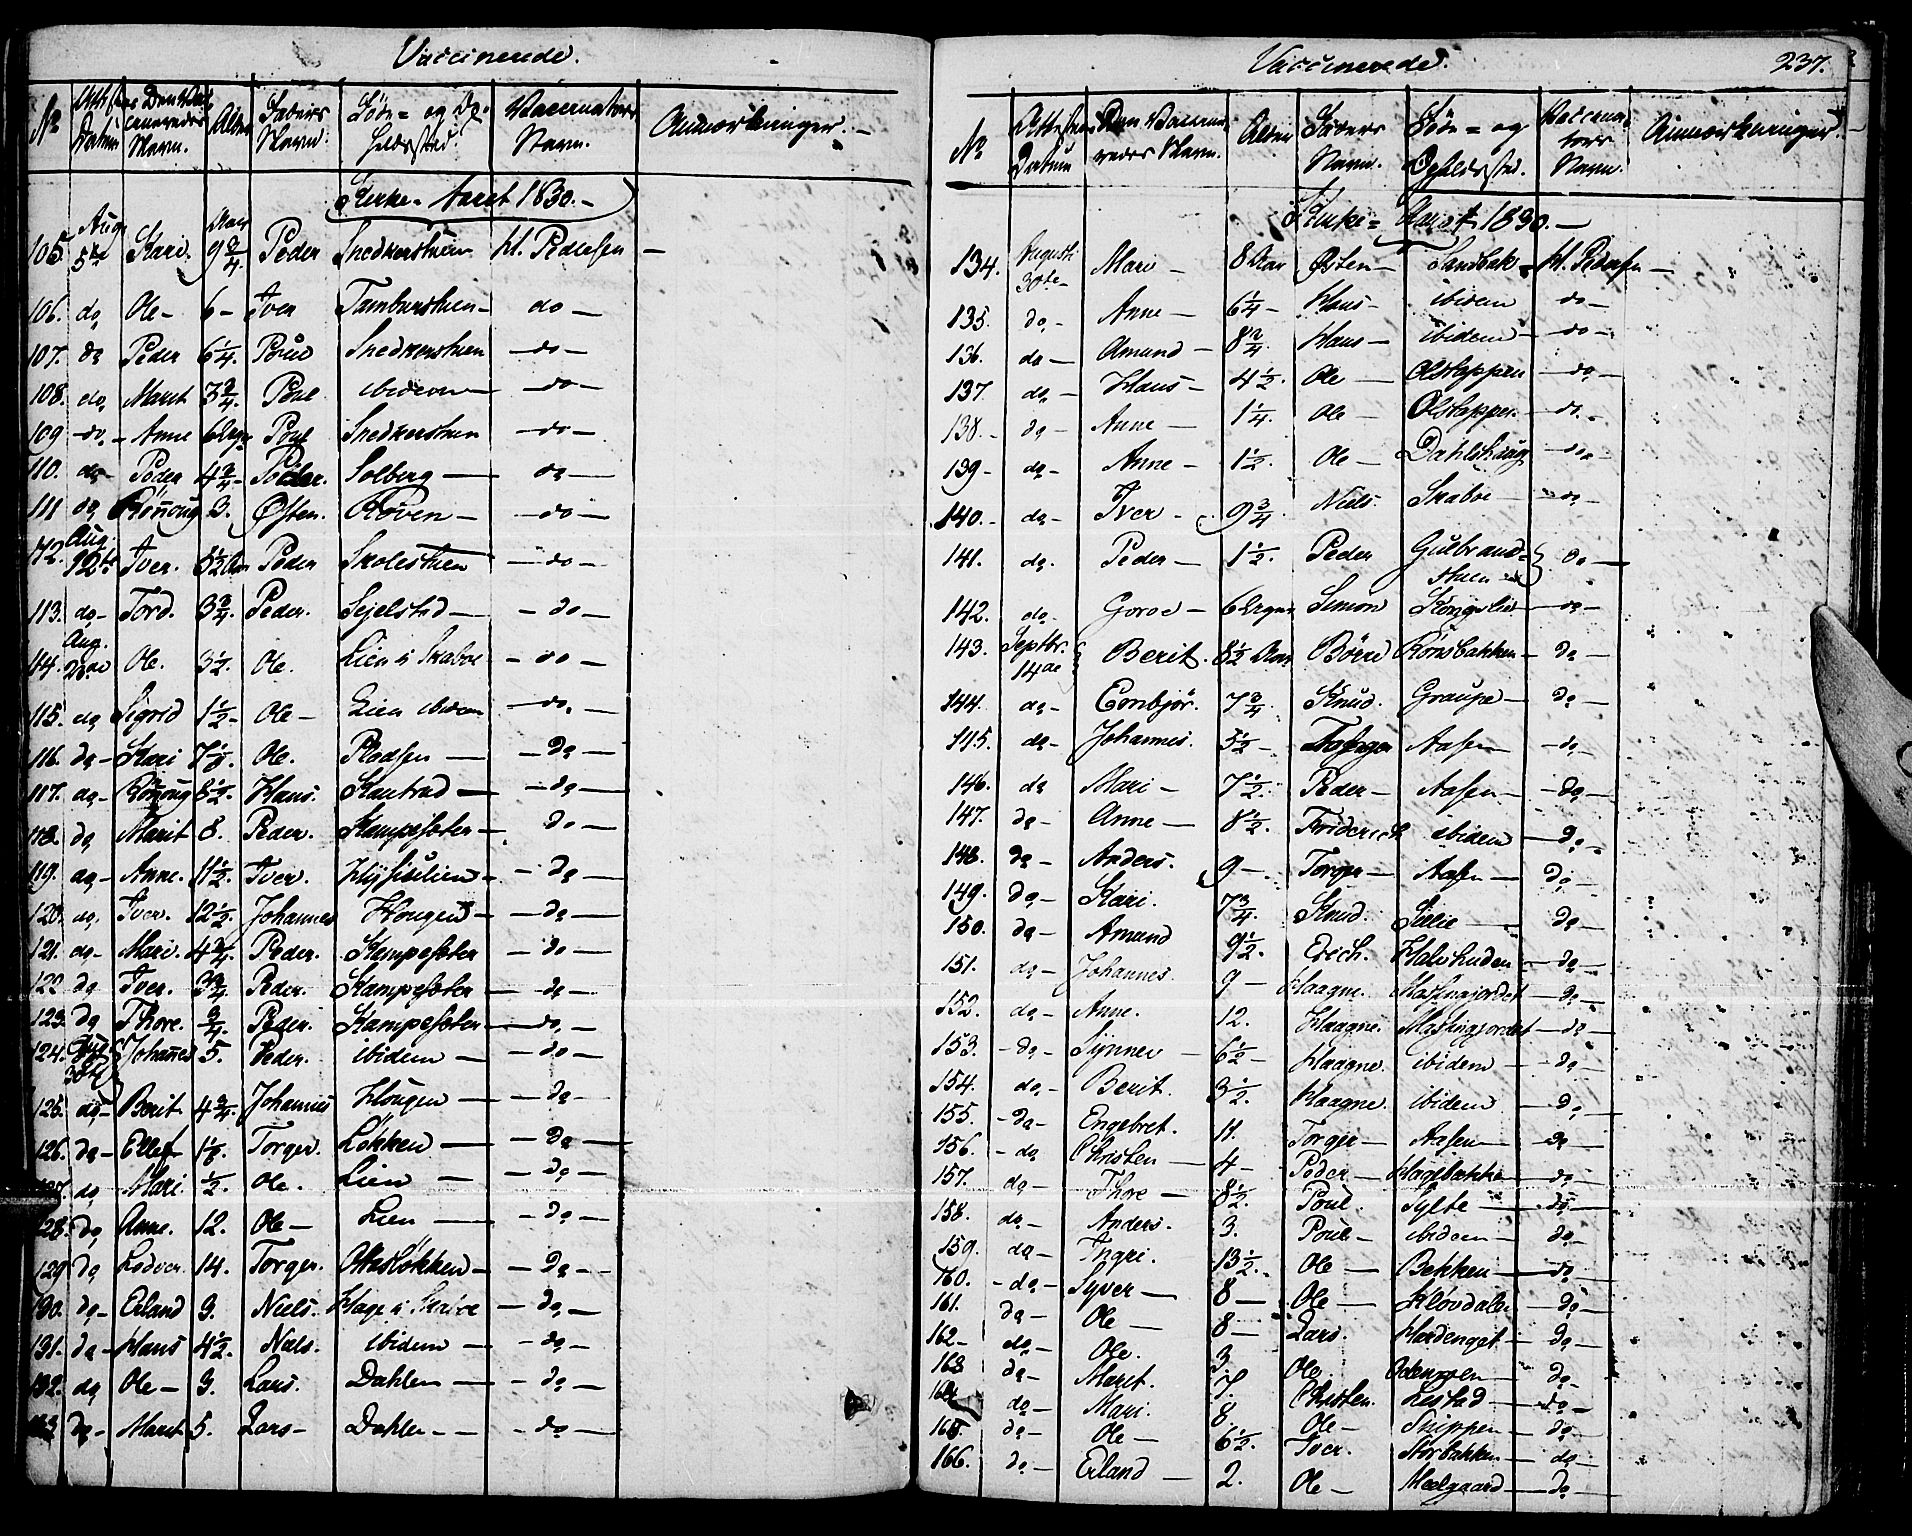 Vaccinerede.
No Attestens Datum Den Vaccineredes Navn. Alder Faders Navn. Føde= og Opholdssted. Vaccinateurs Navn. Anmærkninger.
Kirke-Aaret 1830.
105. Aug. 5te Kari. 9 3/4 Aar Peder Snedkerstuen H. Pedersen —
106. do Ole — 6 — Iver Tamburstuen — do —
107. do Peder 6 1/4 Poul Snedkerstuen — do —
108. do Marit 3 3/4. Poul ibidem — do —
109 do — Anne 6 Uger Poul Snedkerstuen — do —
110. do Peder 4 3/4 — Peder. Solberg — do —
111 do Rönnoug 3. Østen. Røven — do —
12. Aug. 12te Iver. 8 1/2 Aar Peder Skolestuen — do —
113. do — Tord. 3 3/4. Peder. Sejelstad — do —
114. Aug. Ole. 3 1/2. Ole. Lien i Skaboe — do —
115. do Sigrid 1 1/2 — Ole — Lien ibidem — do —
116. do — Kari Ole. — do —
117. do — Rönnoug 8 1/2. Hans. — do —
118. do Marit 8. Peder. Kampesæter — do —
119. do — Anne. 11 1/2. Iver. — do —
120. do Iver. 12 1/2. Johannes Hougen — do —
121. do — Mari. 4 3/4. Peder. Kampesæter — do —
122 do Iver. 3 3/4. Peder. Kampesæter — do —
123. do Thore. 3/4. Peder. Kampesæter — do —
124. 30te Johannes 5. Peder. ibidem — do —
125. do — Berit 4 3/4. Johannes Hougen — do —
126. do — Ellef Torger. Løkken — do —
127. do Mari 1/2. Ole. Lien — do —
128. do Anne. 12. Ole — Lien — do —
129 do Lodver. 14. Torger. — do —
130. do — Erland 3. Niels. Hage i Skaboe — do —
131. do — Hans 4 1/2. Niels. ibidem — do —
132. do Ole — 3. Lars. Dahlen — do —
133 do — Marit 5. Lars — Dahlen — do —
Vaccinerede. 237.
No Attestens Datum Den Vaccineredes Navn. Alder Faders Navn. Føde= og Opholdssted. Vaccinateurs Navn. Anmærkninger.
Kirke= Aaret 1830. —
134. Augusti 30te — Mari — 8 Aar Østen — Sandbak — H. Pedersen —
135. do — Anne — 6 1/4 — Hans — ibidem do —
136. do — Amund — 8 3/4. Hans — ibidem — do —
137. do — Hans — 4 1/2. Ole — Olstappen — do —
138. — do — Anne — 1 1/4. Ole — Olstappen — do —
139 — do — Anne — 1 1/2. Ole — Dahlshaug — do —
140. — do — Iver — 9 3/4 Niels. Skaboe — do —
141. do. Peder — 1 1/2. Peder Gulbrandstuen — do —
142. do — Goroe — 6 Uger Simon Kongslie — do —
143. Septbr. 14de Berit. 8 1/2 Aar Börre Rönsbakken — do —
144. do — Embjør. 7 3/4 Knud. Graupe — do —
145. do — Johannes. 5 1/2 — Torger Aasen — do —
146. do Mari — 7 1/2. Peder — Aasen — do —
147. do — Anne — 8 1/2. Friderich ibidem — do —
148. do — Anders. 9 — Torger — Aasen — do —
149. do — Kari. 7 3/4. Knud. Lillie — do —
150. do — Amund 9 1/2. Erich. Halvhuden — do —
151. do — Johannes 9 — Haagne. — do —
152. do — Anne. 12. Haagne. — do —
153. — do — Synnev — 6 1/2 — Haagne. ibidem — do —
154. do — Berit. 3 1/2. Haagne. ibidem — do —
155. — do — Engebret. 11. Torger — Aasen — do
156. — do Christen — 4 — Peder — Hagebakke — do —
157. do — Thore — 8 1/2. Poul Sylte — do —
158. do — Anders. 3. Poul — ibidem — do —
159. do — Ingri. 13 1/2. Ole — Bekken — do —
160. — do — Syver — 8 — Ole — Kløvdalen — do —
161. do — Ole — 8 — Lars. Hardenget — do —
162 — do — Ole. 3. Ole — do —
163 do — Marit. 7. Christen. Lestad — do —
164 do — Mari. 8 Ole — Snippen — do —
165. do — Ole — 6 1/2. Iver. Storbakken — do —
166. do — Erland — 2. Ole — Melgaard — do —